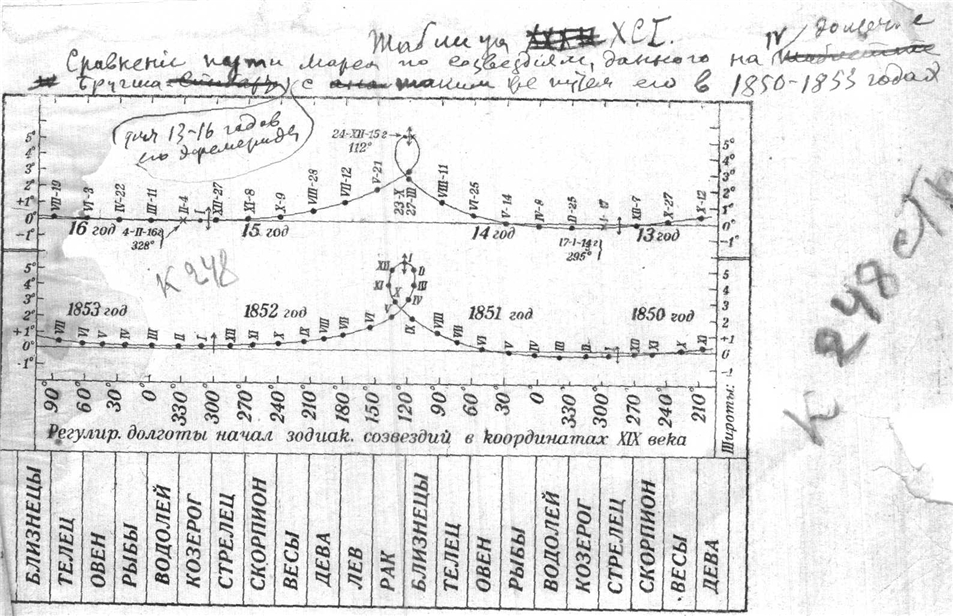 Таблица XCI.
IV дощечке
Сравнение пути Марса по созвездиям, данного на
Бругша с таким же путем его в 1850-1853 годах
для 13-16 годов
его эфемериды
24-XII-15г
112°
5° 4° 3° 2° +1° 0° -1°
VII-19 VI-3 IV-22 III-11 II-4 XII-27 XI-8 X-9 VIII-28 VII-12 V-21 23-X 27-III VIII-11 VI-25 V-14 IV-8 II-25 I-17 XII-7 X-27 X-12
5° 4° 3° 2° +1° 0° -1°
16 год 4-II-16г 328° 15 год 14 год 17-1-14г 295° 13 год
К 248
К 248
5° 4° 3° 2° +1° 0° -1°
XII I II XI III X IV V IX
1853 год 1852 год 1851 год 1850 год
VII VI V IV III II I XII XI X IX VIII VII VI VIII VII VI V IV III II I XII XI X XI
5 4 3 2 +1 0 -1
90° 60° 30° 0° 330° 300° 270° 240° 210° 180° 150° 120° 90° 60° 30° 0° 330° 300° 270° 240° 210°
Широты:
Регулир. долготы начал зодиак. созвездий в координатах XIX века
БЛИЗНЕЦЫ
ТЕЛЕЦ
ОВЕН
РЫБЫ
ВОДОЛЕЙ
КОЗЕРОГ
СТРЕЛЕЦ
СКОРПИОН
ВЕСЫ
ДЕВА
ЛЕВ
РАК
БЛИЗНЕЦЫ
ТЕЛЕЦ
ОВЕН
РЫБЫ
ВОДОЛЕЙ
КОЗЕРОГ
СТРЕЛЕЦ
СКОРПИОН
ВЕСЫ
ДЕВА